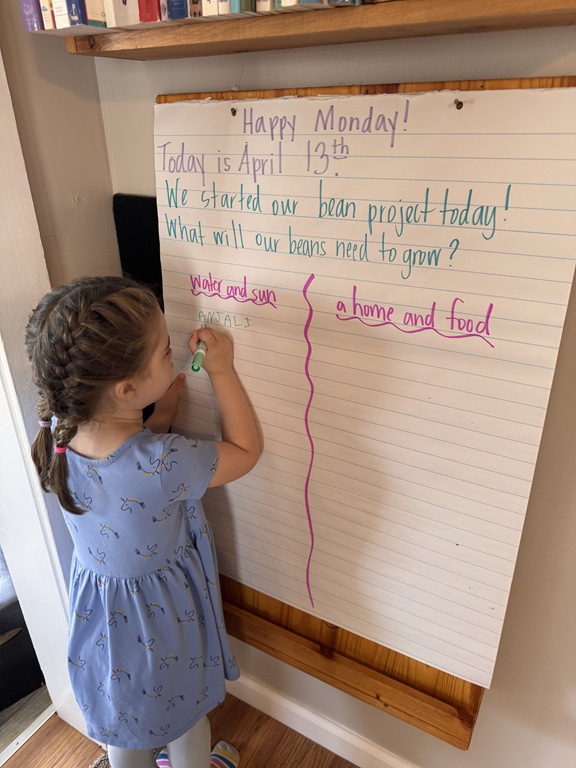 Happy Monday!
Today is April 13th.
We started our bean project today!
What will our beans need to grow?
Water and sun
a home and food
ANJALI